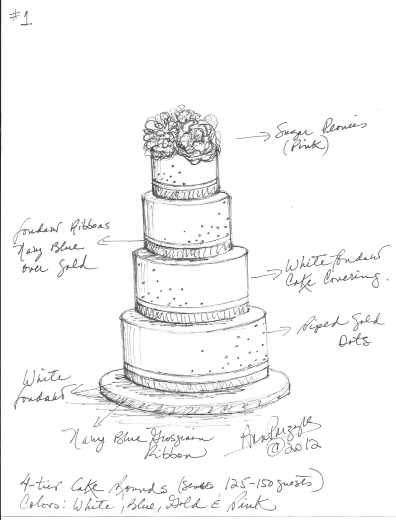 #1
Sugar Peonies
(Pink)
fondant Ribbons
Navy Blue
over Gold
White fondant
Cake Covering.
Piped Gold
Dots
White
fondant
Navy Blue Grosgrain
Ribbon
@2012
4-tier Cake Rounds (serves 125-150 guests)
Colors: White, Blue, Gold & Pink